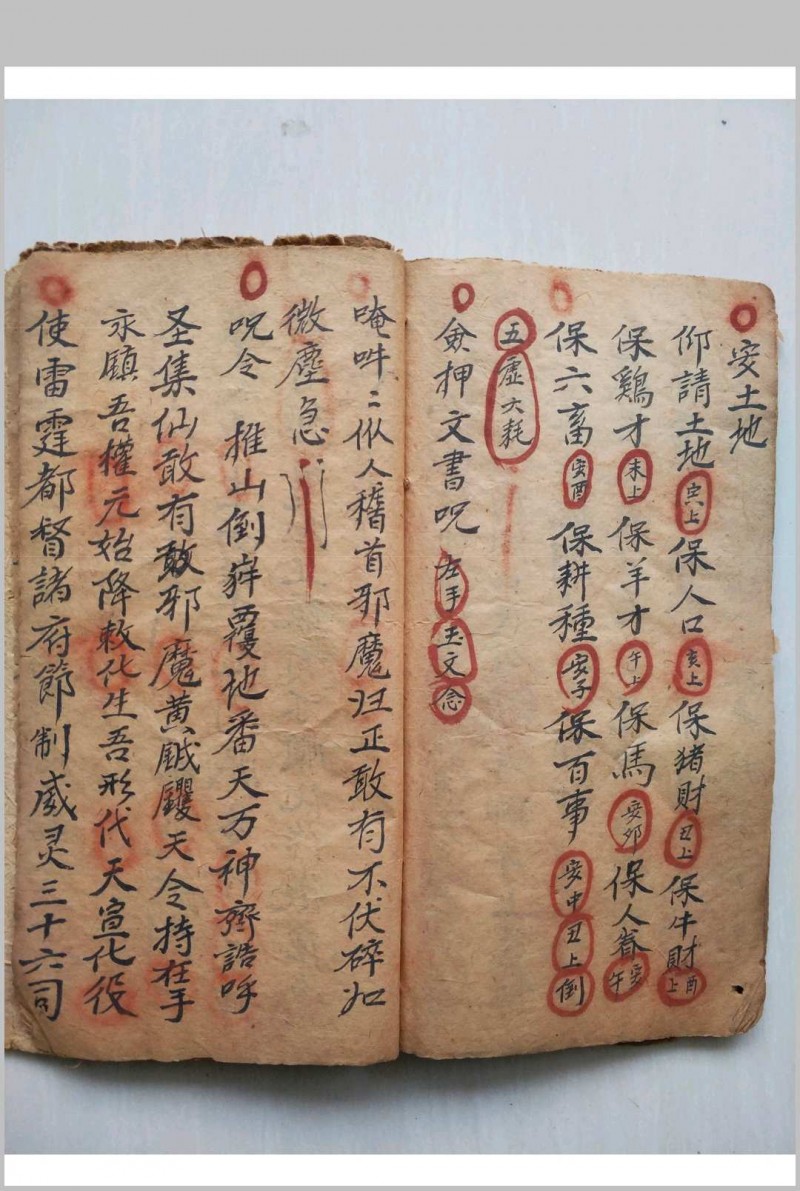 安土地
仰請土地寅上保人口亥上保猪財丑上保牛財酉上
保鷄才未上保羊才午上保馬安卯保人眷安午
保六畜安酉保耕種安子保百事安申丑上倒
五虚六耗
押文書呪左手玉文念
唵吽〻似人稽首邪魔归正敢有不伏碎如
微塵急
呪令推山倒覆地番天万神齊誥呼
圣集仙敢有敢邪魔黄钺钁天令持在手
永鎮吾權元始降敕化生吾形代天宣化役
使雷霆都督諸府節制威灵三十六司